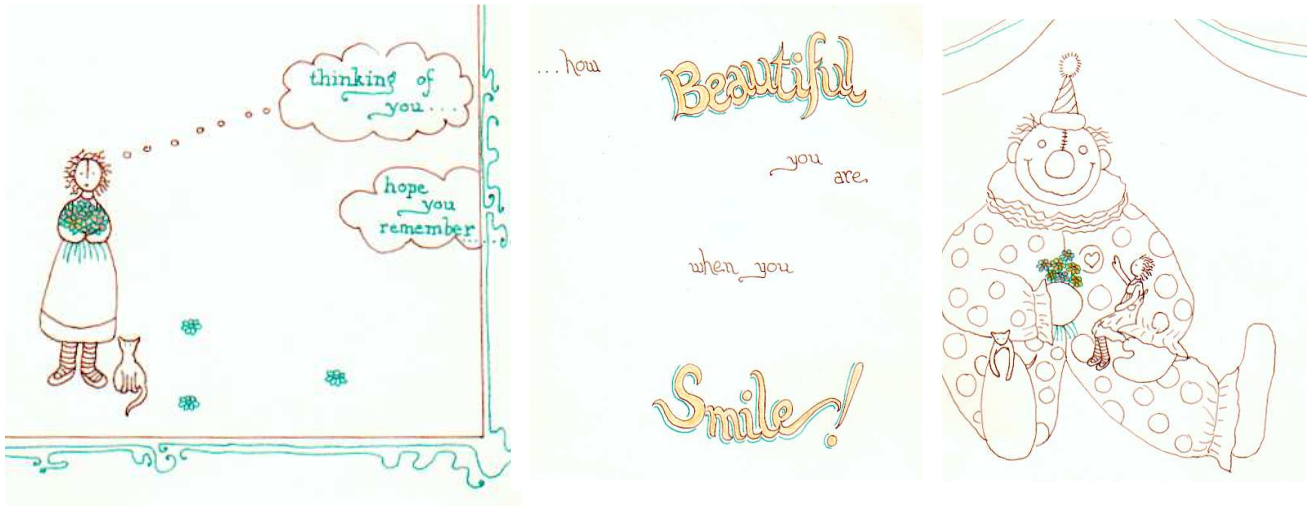 thinking of
you...
hope
you
remember.....
...how
Beautiful
you
are
when you
Smile!